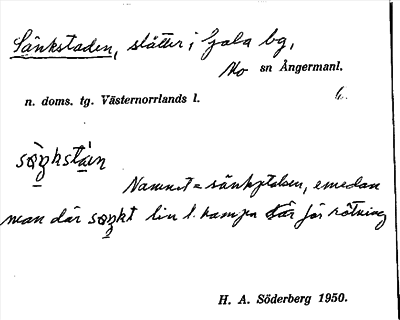 Sänkstaden, slåtter i Gala bg,
Mo sn Ångermanl.
n. doms. tg. Västernorrlands l.
Namnet = sänkplatsen, emedan
man där lin l. hampa där för rötning
H. A. Söderberg 1950.